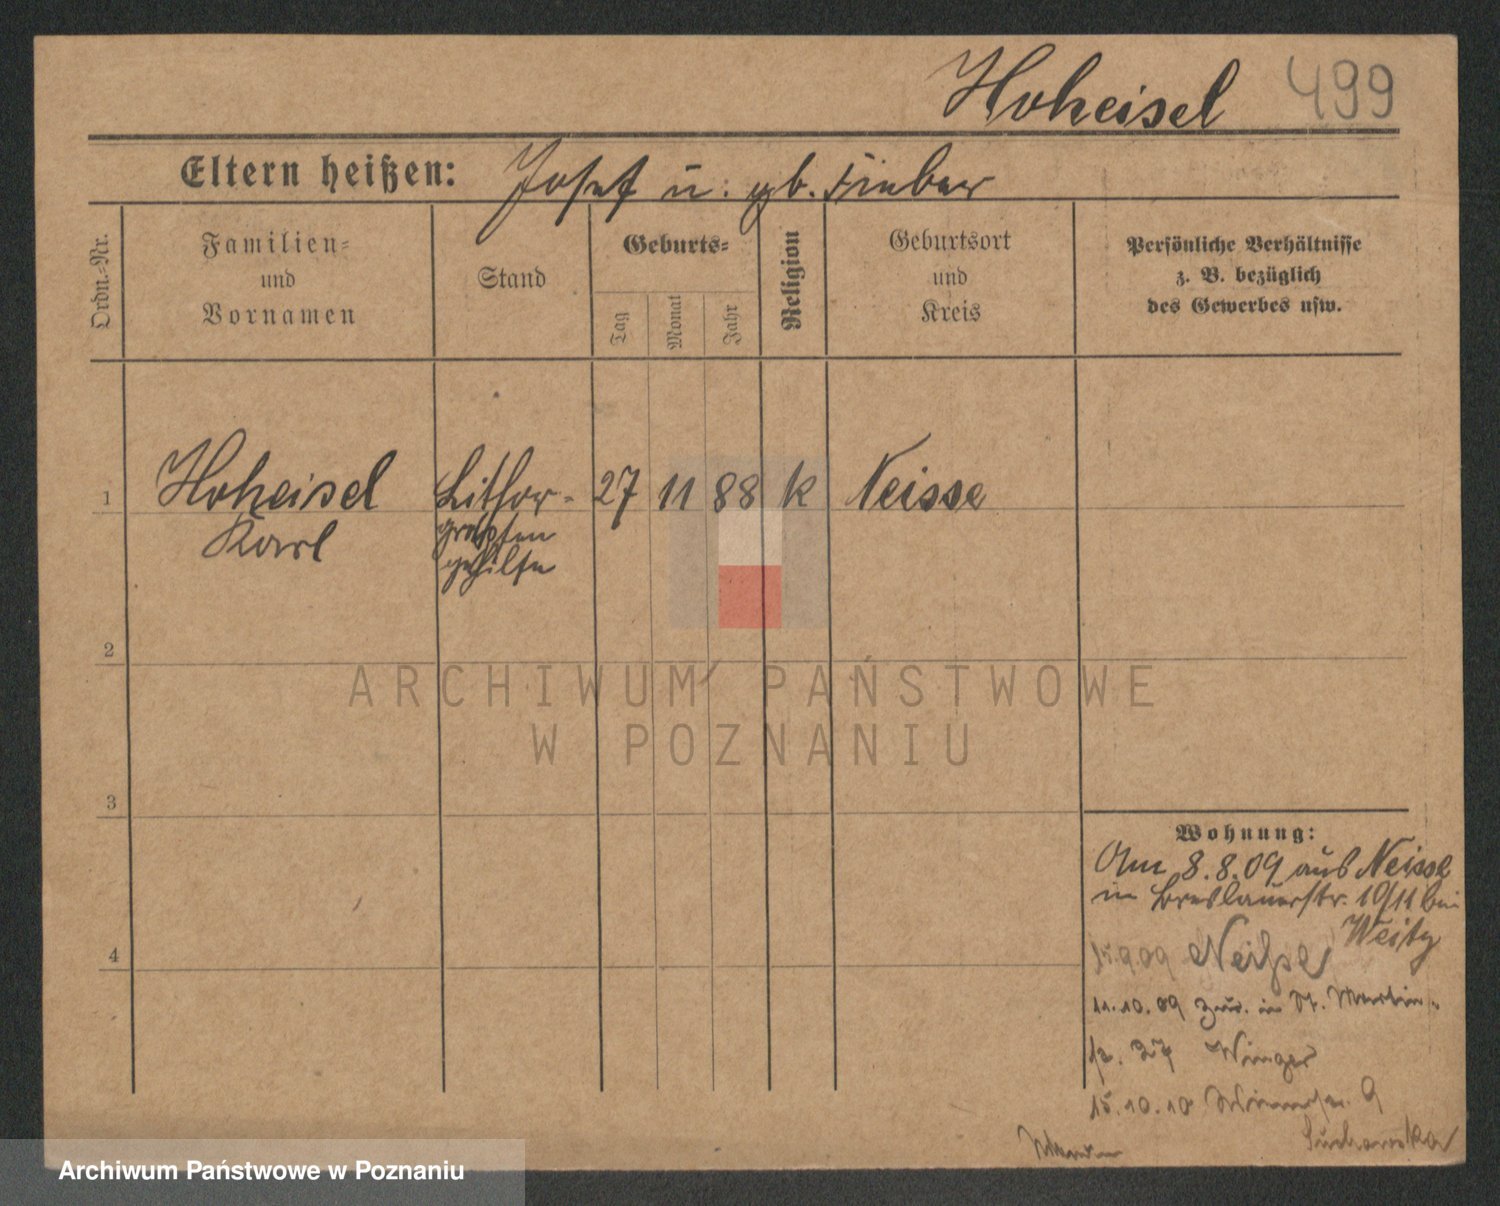 Hoheisel 499
Eltern heißen: Josef u. gb. Fieber
Ordn.-Nr.
Familien-
und
Vornamen
Stand
Geburts-
Tag
Monat
Jahr
Religion
Geburtsort
und
Kreis
Persönliche Verhältnisse
z. B. bezüglich
des Gewerbes usw.
1 Hoheisel Lithor- 27 11 88 k Neisse
Karl
grafen
gehilfe
2
3
4
ARCHIWUM PAŃSTWOWE
W POZNANIU
Wohnung:
Am 8.8.09 aus Neisse
in Breslauerstr. 10/11 bei
Weitz
15.9.09 Neisse
11.10.09 zur. in St. Martin-
str. 27
15.10.10 9
Archiwum Państwowe w Poznaniu